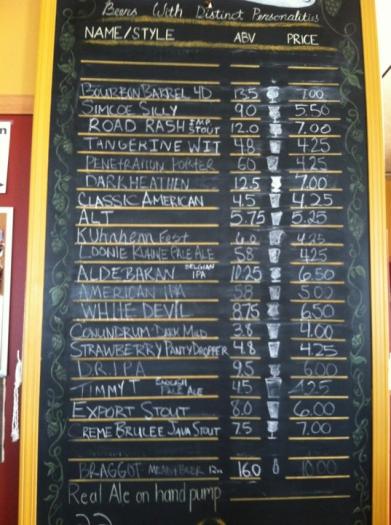 Beers With Distinct Personalities
NAME/STYLE ABV PRICE
BOURBON BARREL 4D 13.5 7.00
SIMCOE SILLY 9.0 5.50
ROAD RASH IMP. STOUT 12.0 7.00
TANGERINE WIT 4.8 4.25
PENETRATION PORTER 6.0 4.25
DARK HEATHEN 12.5 7.00
CLASSIC AMERICAN 4.5 4.25
ALT 5.75 5.25
KUhnhenn Fest 6.0 4.25
LOONIE KUHNIE PALE ALE 5.8 4.25
ALDEBARAN BELGIAN IPA 10.25 6.50
AMERICAN IPA 5.8 5.00
WHITE DEVIL 8.75 6.50
CONUNDRUM DARK MILD 3.8 4.00
STRAWBERRY PANTY DROPPER 4.8 4.25
D.R.I.P.A. 9.5 6.00
TIMMY T ENGLISH PALE ALE 4.5 4.25
EXPORT STOUT 8.0 6.00
CREME BRULEE JAVA STOUT 7.5 7.00
BRAGGOT MEAD/BEER 12oz 16.0 10.00
Real Ale on hand pump